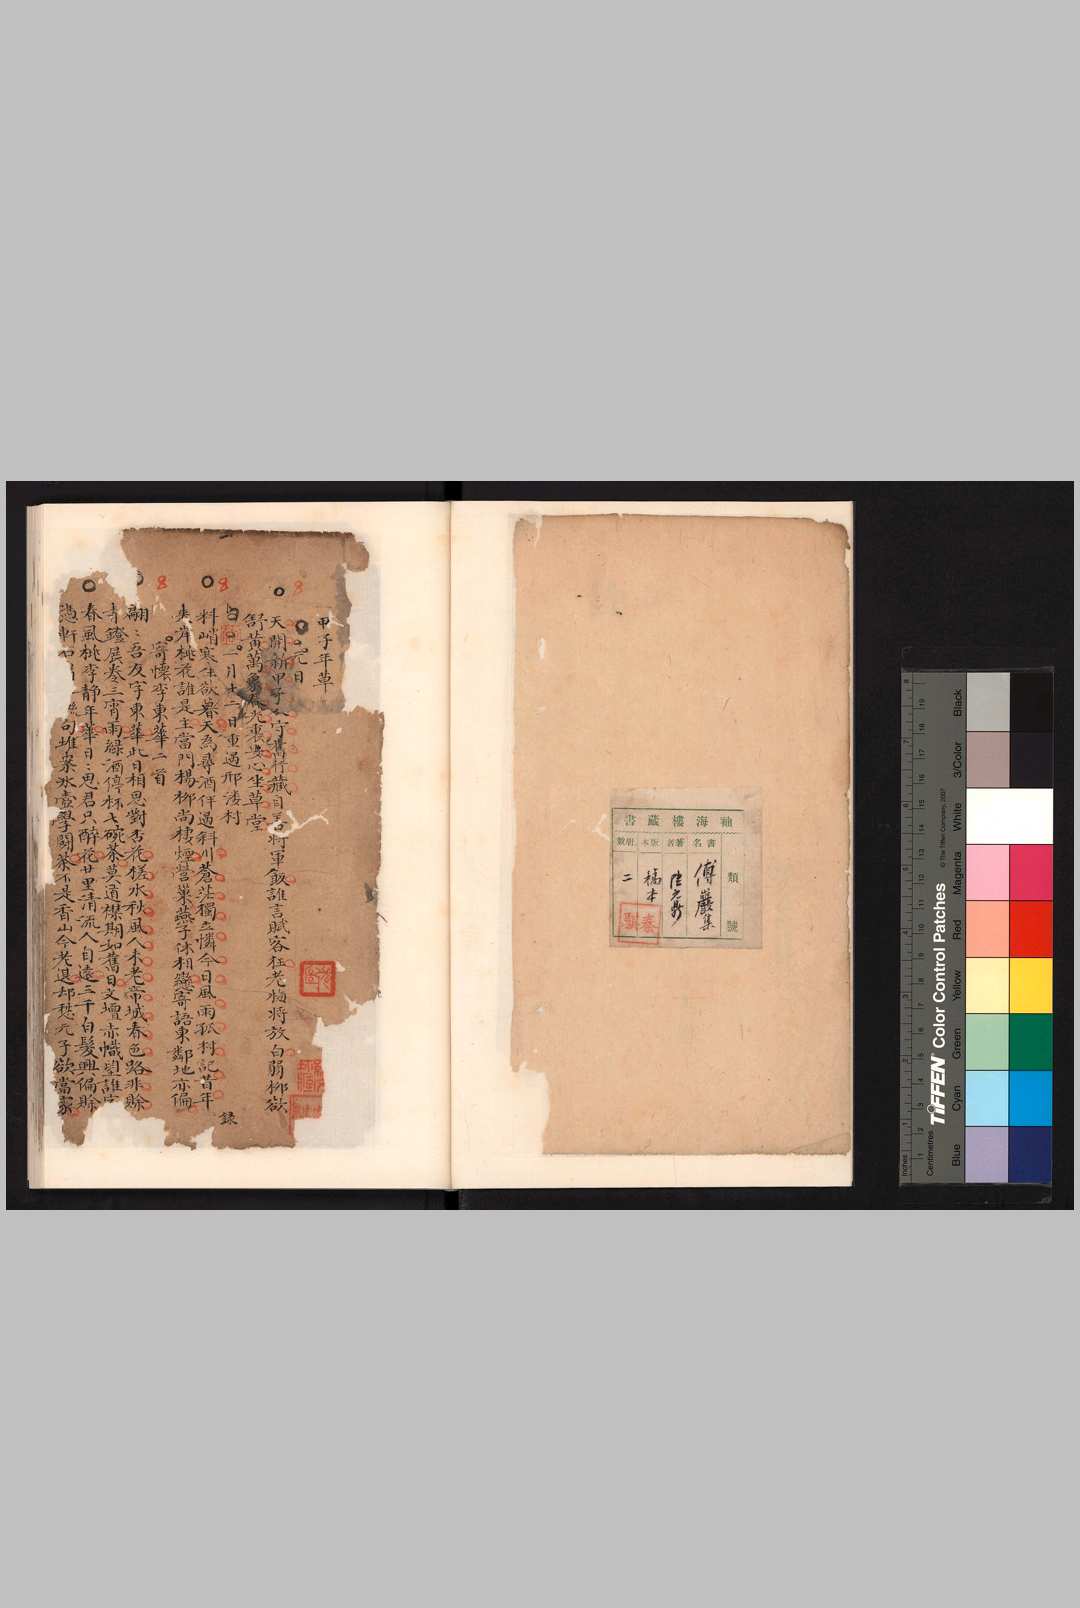 袖海樓藏書
書名
著者
版本
冊數
傅巖集
稿本
二
類
號
甲子年草
元日
天開新甲子 守舊行藏自 將軍飯誰言賦客狂老梅將放白弱柳欲
舒黃萬象春光裏 心坐草堂
一月十二日重過邢湊村
料峭寒生欲暮天為尋酒伴過斜川蒼茫獨立憐今日風雨孤村記昔年
夾岸桃花誰是主當門楊柳尚棲煙營巢燕子休相戀寄語東鄰地亦偏
錄
寄懷李東華二首
翩二吾友字東華此日相思對杏花 水秋風人未老帝城春色路非賒
寺鐙展卷三宵雨綠酒停杯七碗茶莫道襟期如舊日文壇赤幟望誰家
春風桃李靜年華日二思君只醉花廿里清流人自遠三千白髮興偏賒
句堆 冰壺學鬪茶不是香山今老退却愁元子欲當家
TIFFEN Color Control Patches
© The Tiffen Company, 2007
Inches
Centimetres
Blue
Cyan
Green
Yellow
Red
Magenta
White
3/Color
Black